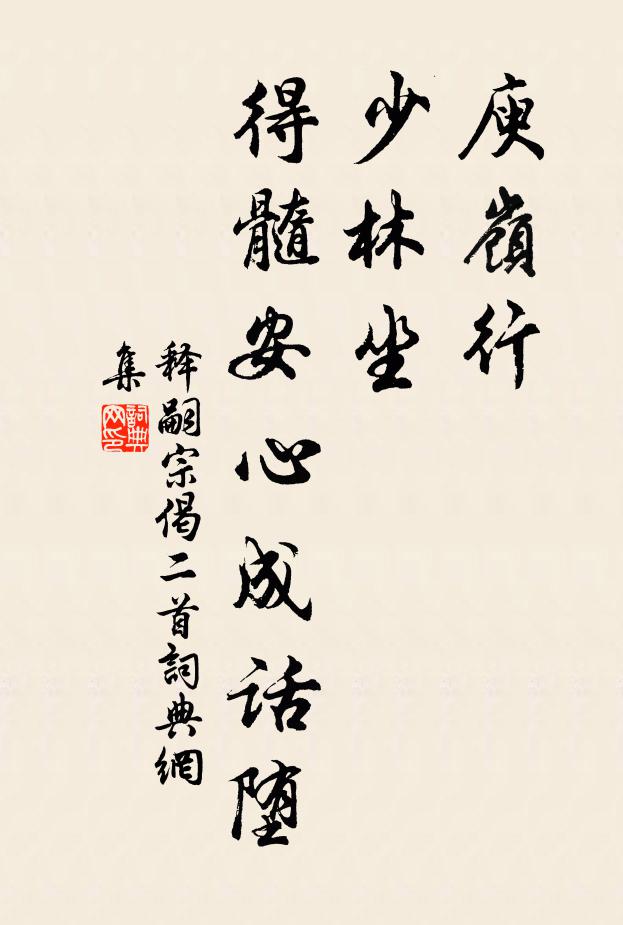 庾嶺行
少林坐
得髓安心成话堕
释嗣宗偈二首詞典網
集
詞典
网印